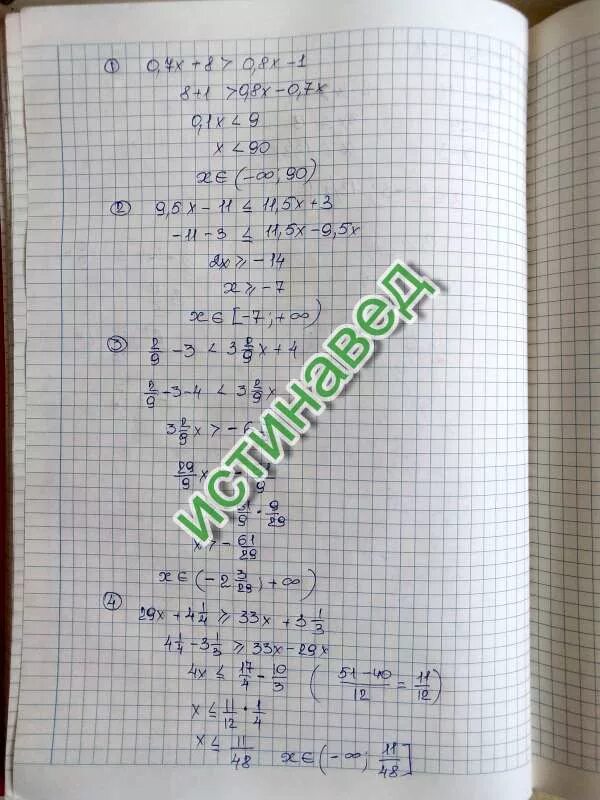 ① 0,7x + 8 > 0,8x - 1
8+1 > 0,8x - 0,7x
0,1x < 9
x < 90
x ∈ (-∞; 90)
② 9,5x - 11 ≤ 11,5x + 3
-11 - 3 ≤ 11,5x - 9,5x
2x ≥ -14
x ≥ -7
x ∈ [-7; +∞)
③ 2/9 - 3 < 3 2/9 x + 4
2/9 - 3 - 4 < 3 2/9 x
3 2/9 x > - 6
29/9 x - /9
/9 · 9/29
x > - 61/29
x ∈ (-2 3/29; +∞)
④ 29x + 4 1/4 ≥ 33x + 3 1/3
4 1/4 - 3 1/3 ≥ 33x - 29x
4x ≤ 17/4 - 10/3 (51-40/12 = 11/12)
x ≤ 11/12 · 1/4
x ≤ 11/48 x ∈ (-∞; 11/48]
истинавед